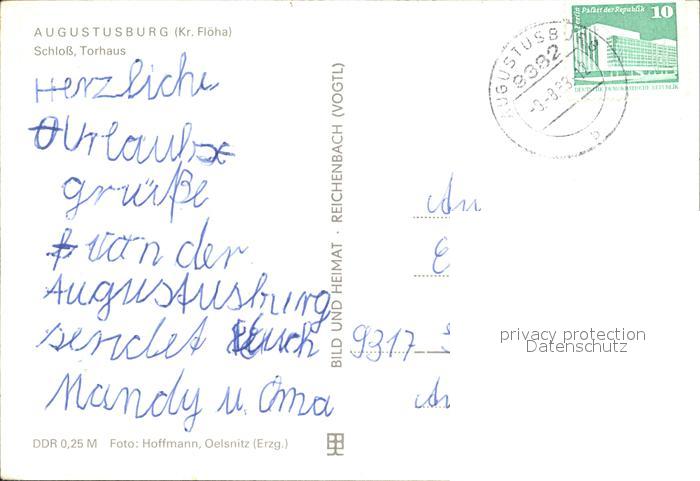 AUGUSTUSBURG (Kr. Flöha)
Schloß, Torhaus
Herzliche
Urlaubs
grüße
von der
Augustusburg
sendet Euch
Mandy u. Oma
DDR 0,25 M Foto: Hoffmann, Oelsnitz (Erzg.)
BILD UND HEIMAT · REICHENBACH (VOGTL)
Berlin Palast der Republik 10
DEUTSCHE DEMOKRATISCHE REPUBLIK
AUGUSTUSBURG
9382
b
An
E
9317
An
privacy protection
Datenschutz